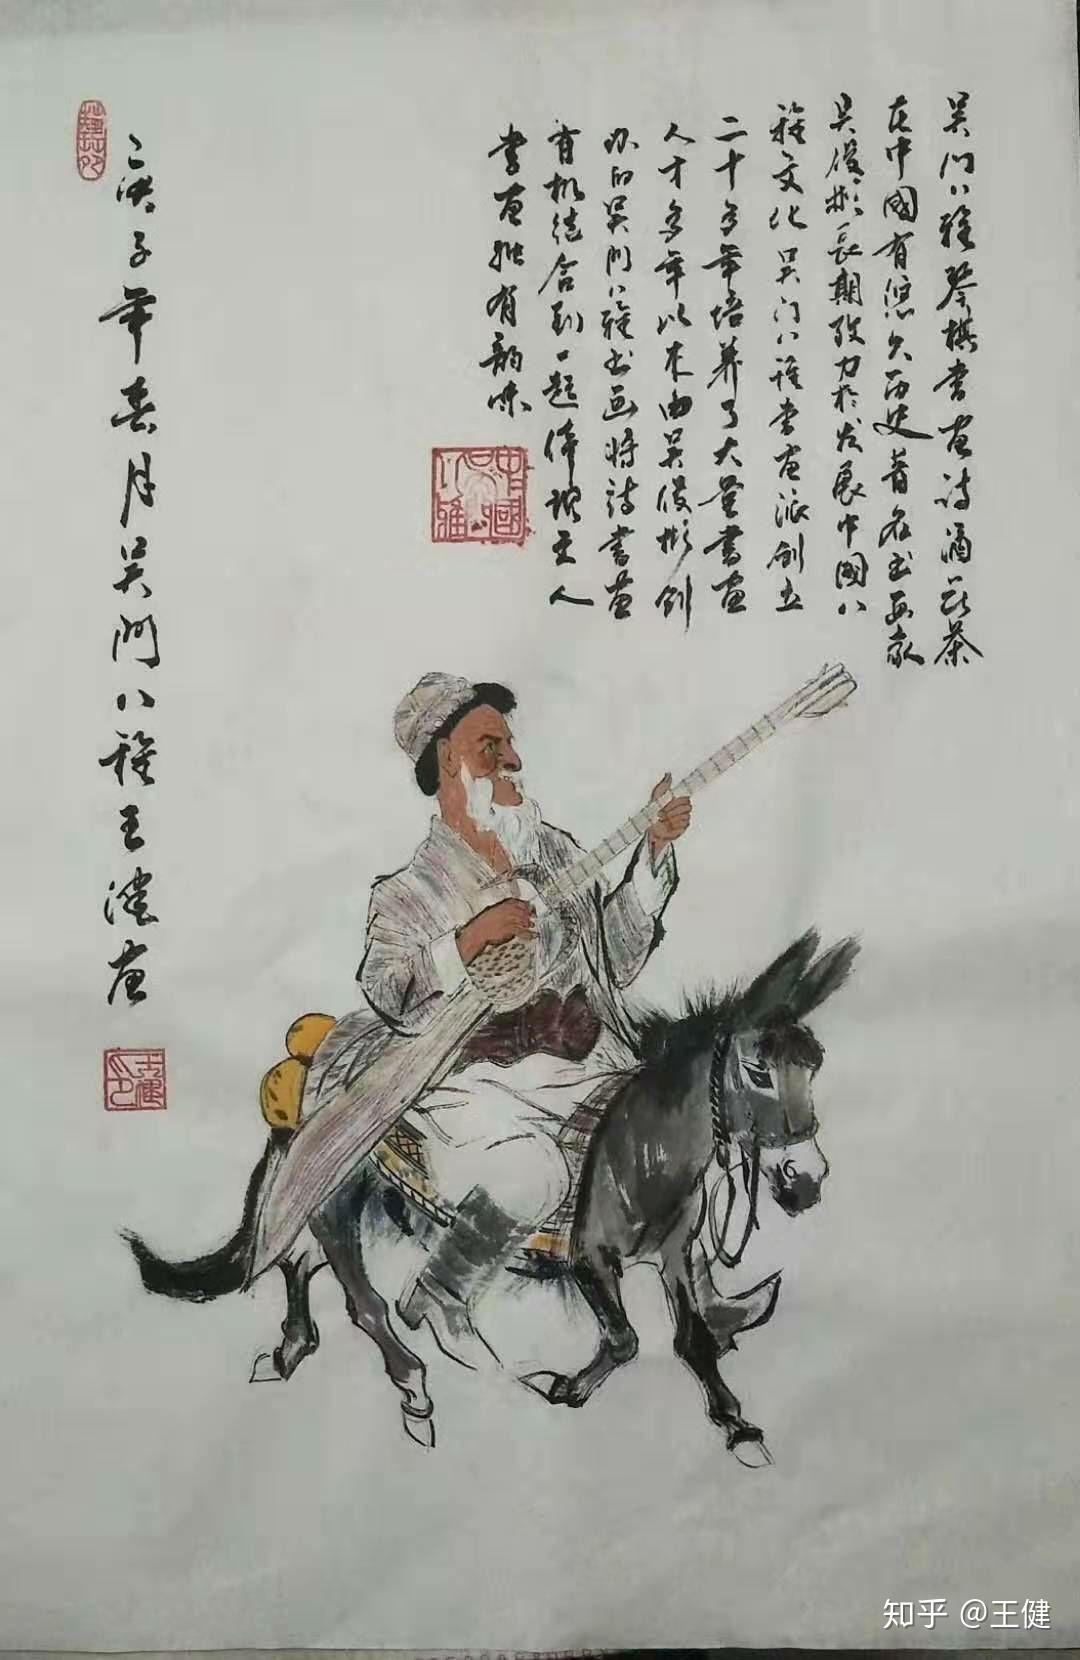 吴门八雅琴棋书画诗酒花茶
在中國有悠久历史著名书画家
吴俊彬长期致力於发展中國八
雅文化吴门八雅书画派创立
二十多年培养了大量书画
人才多年以来由吴俊彬创
办的吴门八雅书画将诗书画
有机结合到一起体现文人
书画独有韵味
中國
八雅
庚子年春月吴门八雅王健画
王健
印
知乎 @王健